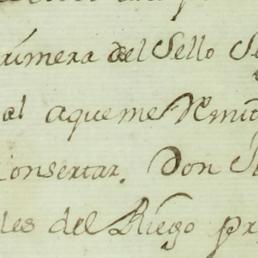 rimera del Sello Se
al aqueme Remit
Consertar. Don
les del Riego pr